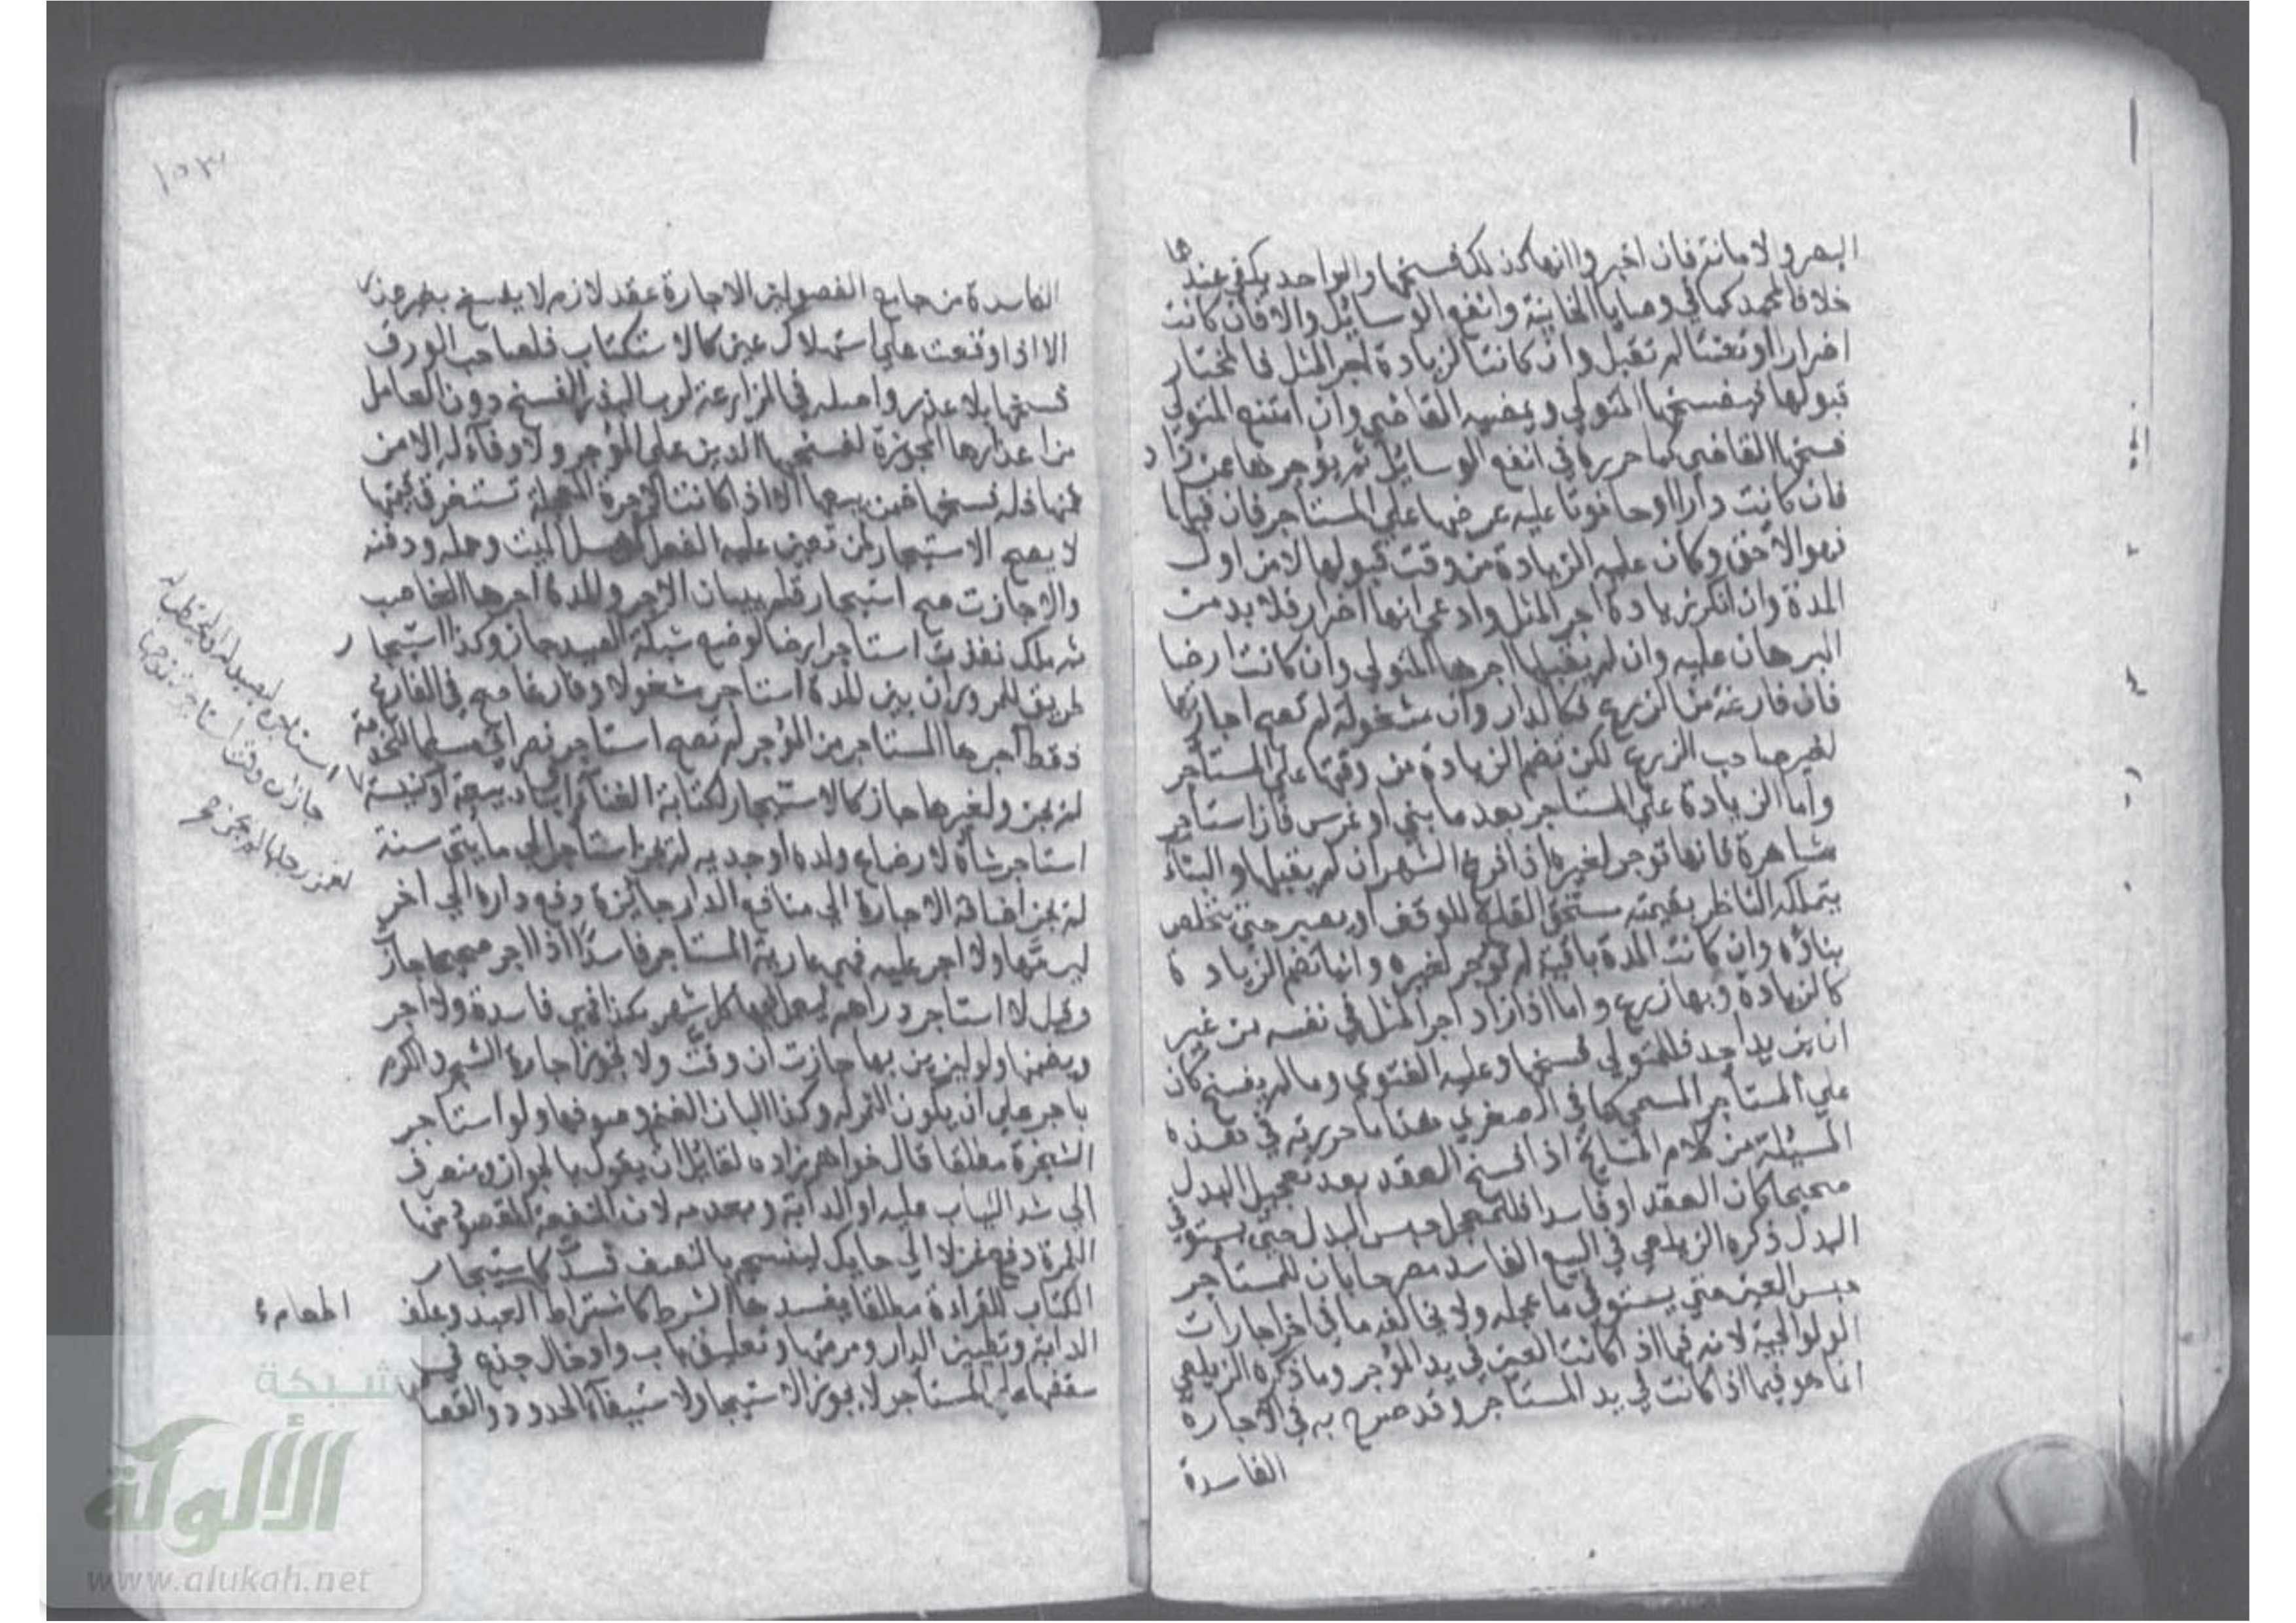 البصر والامانة فان اخبروا انها كذلك فسخها والواحد يكفي عندهما
خلافا لمحمد كما في وصايا الخانية وانفع الوسائل والا فان كانت
اضرارا او تعنتا لم تقبل وان كانت لزيادة اجر المثل فالمختار
قبولها فيفسخها المتولي ويمضيه القاضي وان امتنع المتولي
فسخها القاضي كما حرره في انفع الوسائل ثم يؤجرها ممن زاد
فان كانت دارا او حانوتا عليه عرضها علي المستاجر فان قبلها
فهو الاحق وكان عليه الزيادة من وقت قبولها لا من اول
المدة وان انكر زيادة اجر المثل وادعي انها اضرار فلا بد من
البرهان عليه وان لم يقبلها اجرها المتولي وان كانت ارضا
فان فارغة من الزرع فكالدار وان مشغولة لم تصح اجارتها
لغير صاحب الزرع لكن تضم الزيادة من وقتها علي المستأجر
واما الزيادة علي المستاجر بعد ما بني او غرس فان استأجر
مشاهرة فانها توجر لغيره اذا فرغ الشهر ان لم يقبلها والبناء
يتملكه الناظر بقيمته مستحق القلع للوقف او يصبر حتي يتخلص
بناؤه وان كانت المدة باقية لم تؤجر لغيره وانها تضم الزيادة
كالزيادة وبها زرع واما اذا زاد اجر المثل في نفسه من غير
ان يزيد احد فللمتولي فسخها وعليه الفتوي وما لم يفسخ كان
علي المستأجر المسمي كما في الصغري هذا ما حررته في هذه
المسئلة من كلام المشايخ اذا فسخ العقد بعد تعجيل البدل
صحيحا كان العقد او فاسدا فللمعجل حبس البدل حتي يستوفي
البدل ذكره الزيلعي في البيع الفاسد مصرحا بان للمستاجر
حبس العين حتي يستوفي ما عجله ولا يخالفه ما في اخر اجارات
الولوالجية لانه فيما اذا كانت العين في يد المؤجر وما ذكره الزيلعي
انما هو فيما اذا كانت في يد المستاجر وقد صرح به في الاجارة
الفاسدة
١٥٣
الفاسدة من جامع الفصولين الاجارة عقد لازم لا يفسخ بغير عذر
الا اذا وقعت علي استهلاك عين كالاستكتاب فلصاحب الورق
فسخها بلا عذر واصله في المزارعة لرب البذر الفسخ دون العامل
من اعذارها المجوزة لفسخها الدين علي المؤجر ولا وفاء له الا من
ثمنها فله فسخها فيبيعها الا اذا كانت الاجرة المعجلة تستغرق قيمتها
لا يصح الاستيجار لمن تعين عليه الفعل كغسل الميت وحمله ودفنه
والا جازت صح استيجار قلم ببيان الاجر والمدة اجرها الغاصب
ثم ملك نفذت استاجر ارضا لوضع شبكة الصيد جاز وكذا استيجار
طريق للمرور ان بين المدة استاجر مشغولا وفارغا صح في الفارغ
فقط اجرها المستاجر من المؤجر لم تصح استاجر نصراني مسلما للخدمة
لم يجز ولغيرها جاز كالاستيجار لكتابة الغناء او بناء بيعة او كنيسة
استاجر شاة لارضاع ولده او جديه لم يجز استأجر الي مايتي سنة
لم يجز اضافة الاجارة الي منافع الدار جايزة دفع داره الي اخر
ليرمها ولا اجر عليه فهي عارية المستاجر فاسدا اذا اجر صحيحا جاز
وقيل لا استاجر دراهم ليعمل بها كل شهر بكذا فهي فاسدة ولا اجر
ويضمنها ولو ليزين بها جازت ان وقت ولا تجوز اجارة الشجر والكرم
باجر علي ان يكون الثمر له وكذا البان الغنم وصوفها ولو استاجر
الشجرة مطلقا قال خواهر زاده لقائل ان يقول بالجواز وينصرف
الي شد الثياب عليه او الدابة وبعدمه لان المنفعة المقصودة منها
الثمرة دفع غزلا الي حايك لينسجه بالنصف فسد كاستيجار
الكتاب للقراءة مطلقا يفسدها الشرط كاشتراط اطعام العبد وعلف
الدابة وتطيين الدار ومرمتها وتعليق باب وادخال جذع في
سقفها علي المستاجر لا يجوز الاستيجار لاستيفاء الحدود والقصاص
استاجر ليصيد له او ليحتطب له
جاز ان وقت استاجر زوجته
لغمز رجلها لم يجز
اطعام
شبكة
الألوكة
www.alukah.net